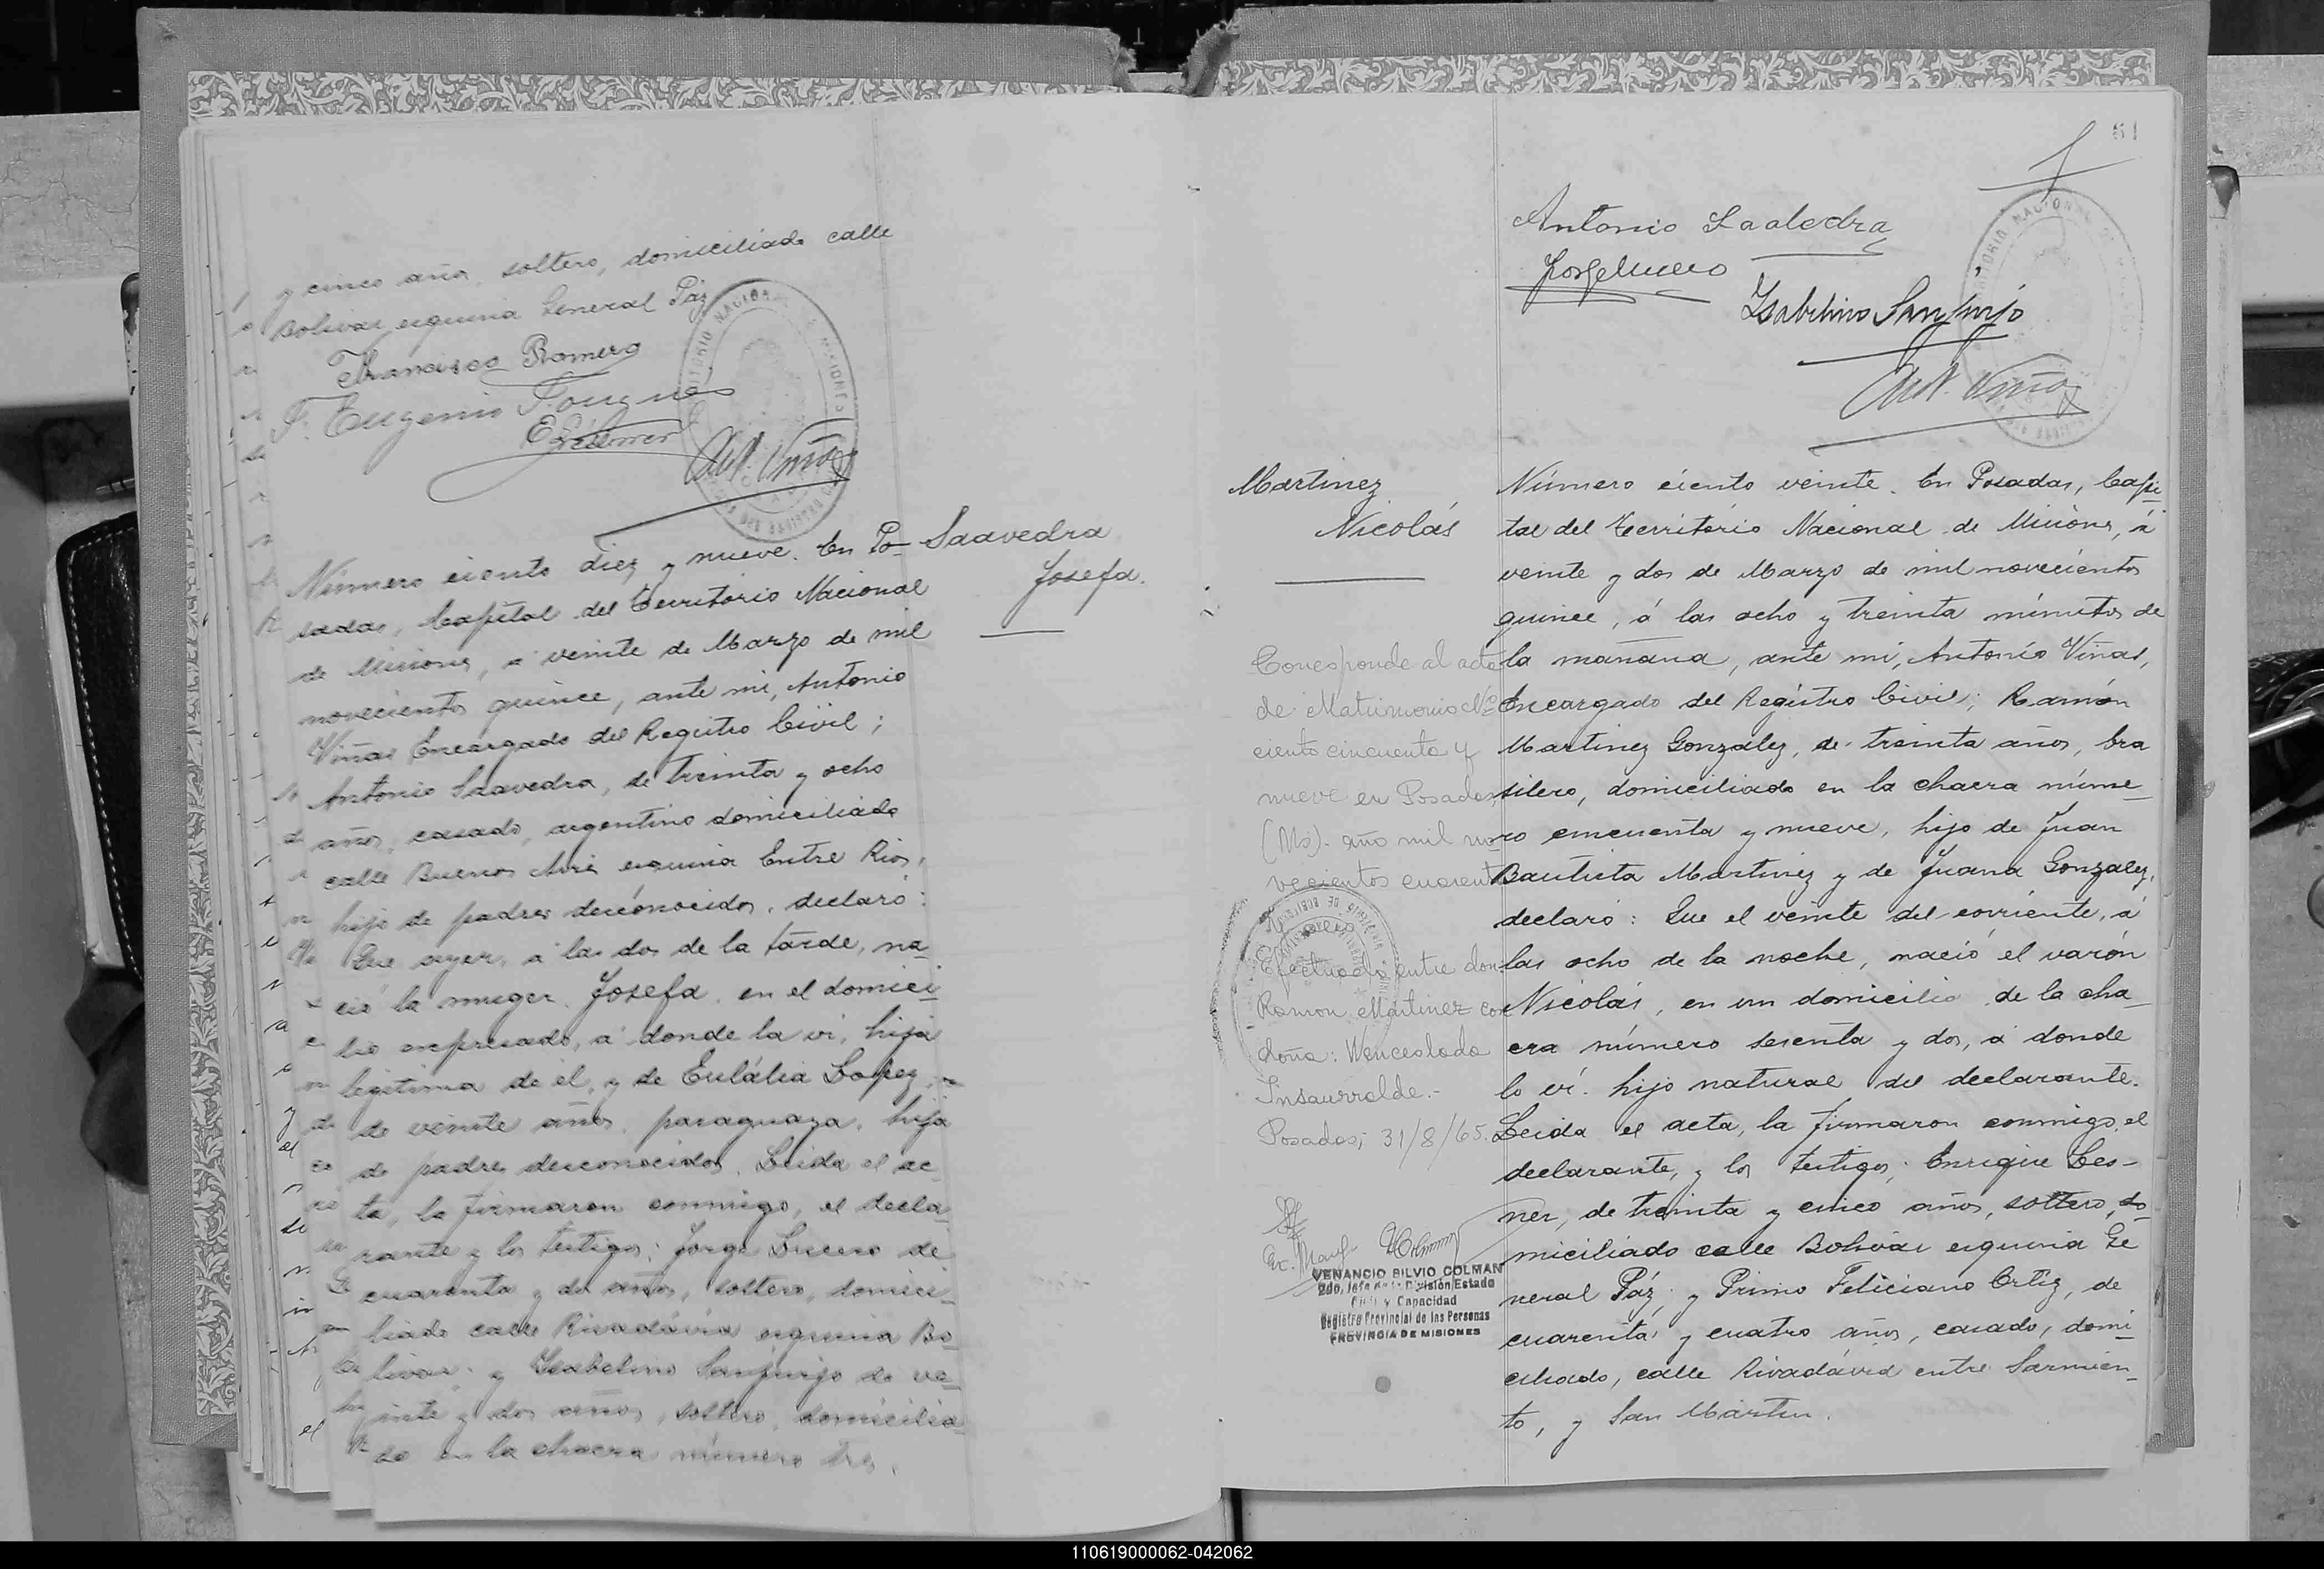 y cinco años, soltero, domiciliado calle
Bolivar esquina General Páz
Francisco Romero
F. Eugenio
Ant. Viñas
Saavedra
Josefa.
Número ciento diez y nueve. En Po-
sadas, Capital del Territorio Nacional
de Misiones, a veinte de Marzo de mil
novecientos quince, ante mi, Antonio
Viñas Encargado del Registro Civil;
Antonio Saavedra, de treinta y ocho
años, casado, argentino domiciliado
calle Buenos Aires esquina Entre Rios,
hijo de padres desconocidos, declaró:
Que ayer, a las dos de la tarde, na
ció la muger Josefa en el domici-
lio expresado, a donde la vi, hija
legitima de él, y de Eulália Lopez,
de veinte años, paraguaya, hija
de padres desconocidos. Leida el ac
ta, la firmaron conmigo, el decla-
rante y los testigos: Jorge Lucero de
cuarenta y dos años, soltero, domici-
liado calle Rivadávia esquina Bo-
livar y Ysabelino Sanjurjo de ve-
inte y dos años, soltero, domicilia
do en la chacra número tres.
51
Antonio Saabedra
Jorge Lucero
Ysabelino Sanjurjo
Ant. Viñas
Martinez
Nicolás
Número ciento veinte. En Posadas, Capi-
tal del Territorio Nacional de Misiones, á
veinte y dos de Marzo de mil novecientos
quince, á las ocho y treinta minutos de
la mañana, ante mi, Antonio Viñas,
Encargado del Registro Civil; Ramón
Martinez Gonzalez, de treinta años, bra
silero, domiciliado en la chacra núme-
ro cincuenta y nueve, hijo de Juan
Bautista Martinez y de Juana Gonzalez,
declaró: Que el veinte del corriente, á
las ocho de la noche, nació el varón
Nicolás, en un domicilio de la cha-
cra número sesenta y dos, á donde
lo ví. hijo natural del declarante.
Leida el acta, la firmaron conmigo, el
declarante, y los testigos; Enrique Les-
ner, de treinta y cinco años, soltero, do-
miciliado calle Bolivar esquina Ge
neral Páz; y Primo Feliciano Ortiz, de
cuarenta y cuatro años, casado, domi-
ciliado, calle Rivadávia entre Sarmien-
to, y San Martin.
Corresponde al acta
de Matrimonio Nº
ciento cincuenta y
nueve en Posadas,
(Ms). año mil no-
vecientos cuarent
Efectuado entre don
Ramon Martinez con
doña: Wenceslada
Insaurralde.-
Posadas, 31/8/65.
VENANCIO SILVIO COLMAN
2do. Jefe de la División Estado
Civil y Capacidad
Registro Provincial de las Personas
PROVINCIA DE MISIONES
110619000062-042062